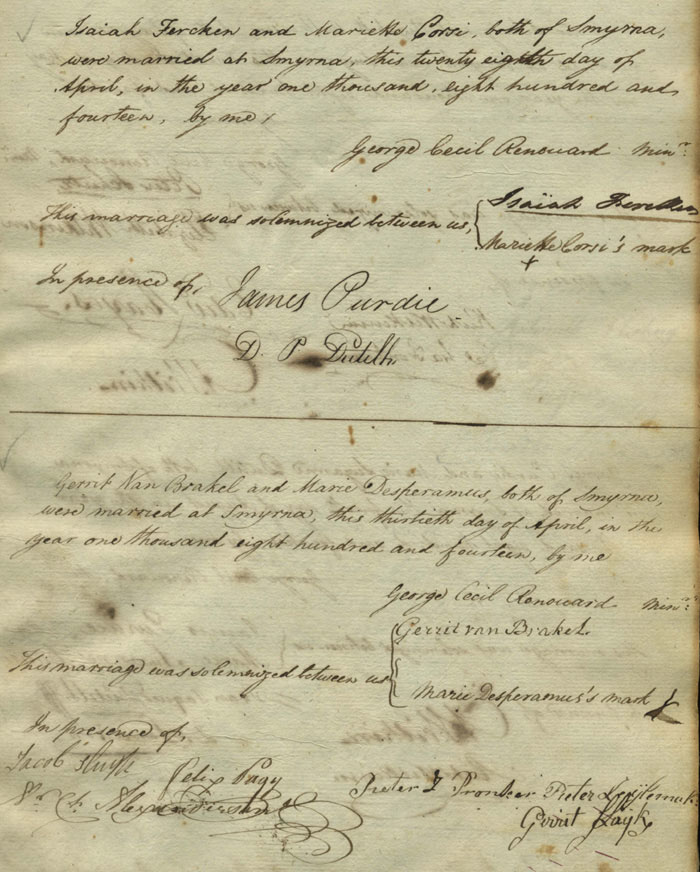 Isaiah Fercken and Mariette Corsi, both of Smyrna,
were married at Smyrna, this twenty eighth day of
April, in the year one thousand, eight hundred and
fourteen, by me,
George Cecil Renouard Min.r
This marriage was solemnized between us,
Isaïah Fercken
Mariette Corsi's mark
+
In presence of,
James Purdie
D. P. Dutilh
Gerrit Van Brakel and Marie Desperamus, both of Smyrna,
were married at Smyrna, this thirtieth day of April, in the
year one thousand eight hundred and fourteen, by me
George Cecil Renouard Min.r
This marriage was solemnized between us
Gerrit van Brakel
Marie Desperamus's mark X
In presence of,
Jacob
Felix Pagy
Pieter Pieter
Gerrit